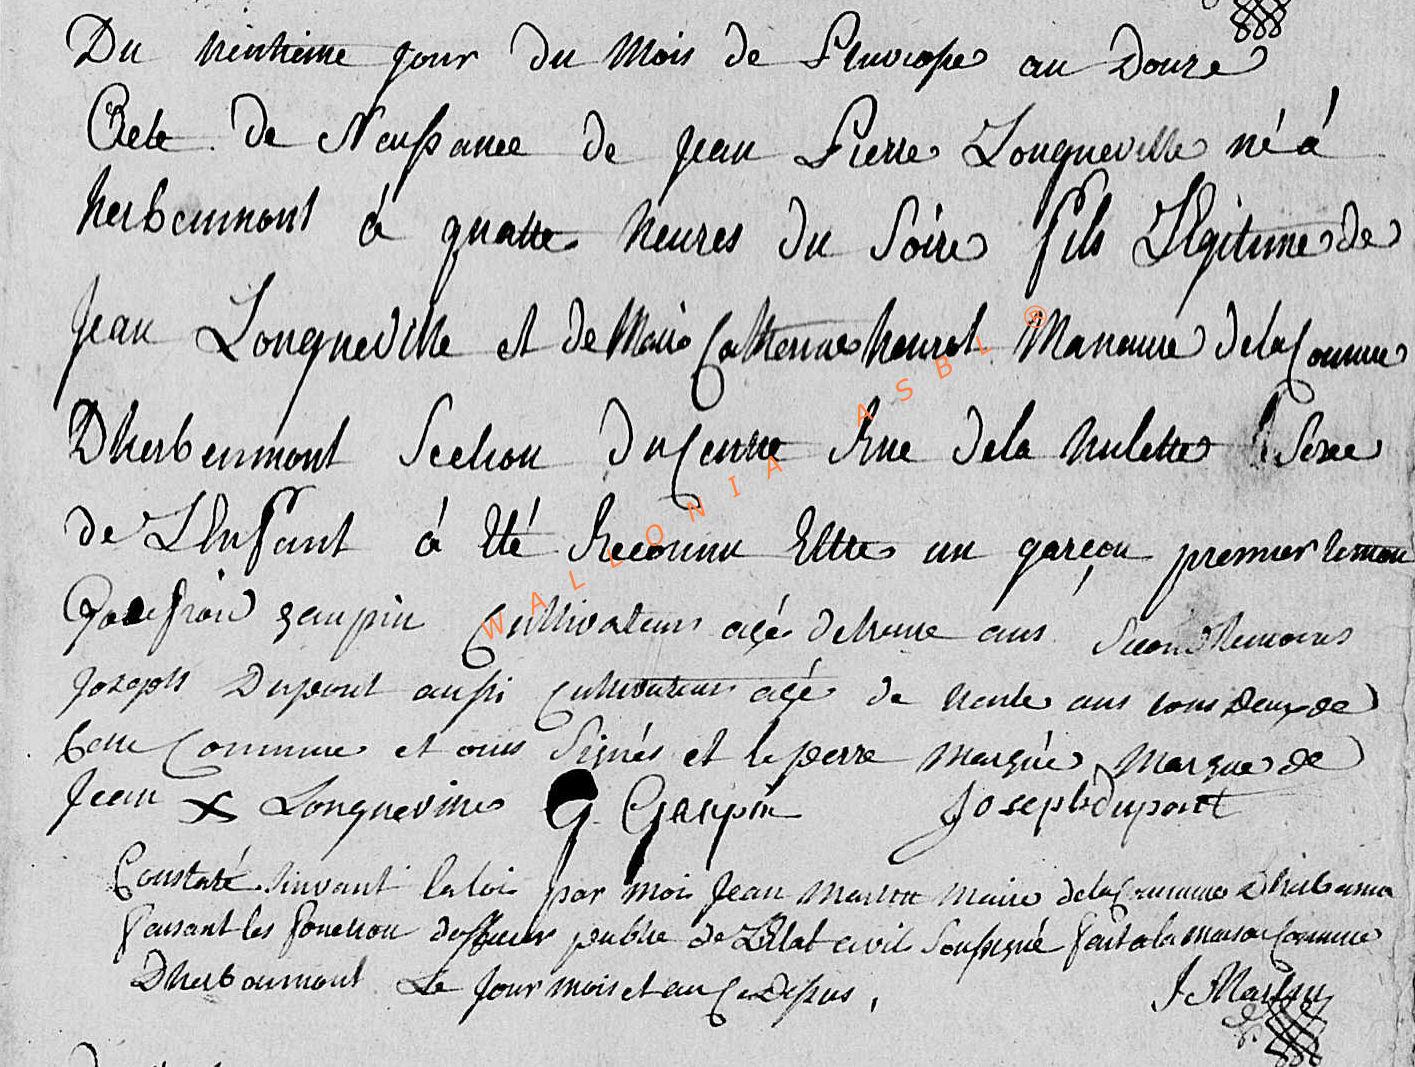 Du trentieme jour du mois de Pluviosse an Douze
Acte de Naissance de Jean Pierre Longueville né á
herbeumont á quatre heures du Soire fils Legitime de
Jean Longueville et de Marie Catherine henrot Maneuvre de la Commune
Dherbeumont Section du Centre Rue de la hulette le Sexe
de L'Enfant á Eté Reconnu Ettre un garçon premier temoin
Godefroid gaupin Cultivateur agé de trente ans Second temoins
Joseph Dupont aussi Cultivateur agé de trente ans tous Deux de
Cette Commune et ons Signés et le perre Marqué Marque de
Jean X Longueville G. Gaupin Joseph dupont
Constaté Suivant la loi par moi Jean Marson Maire de la Commune Dherbeumon
faisant les fonction dofficier public de L'Etat civil Soussigné fait a la maison Commune
Dherbeumont Le Jour mois et an Ce Dessus,
J Marson
WALLONIA ASBL ®